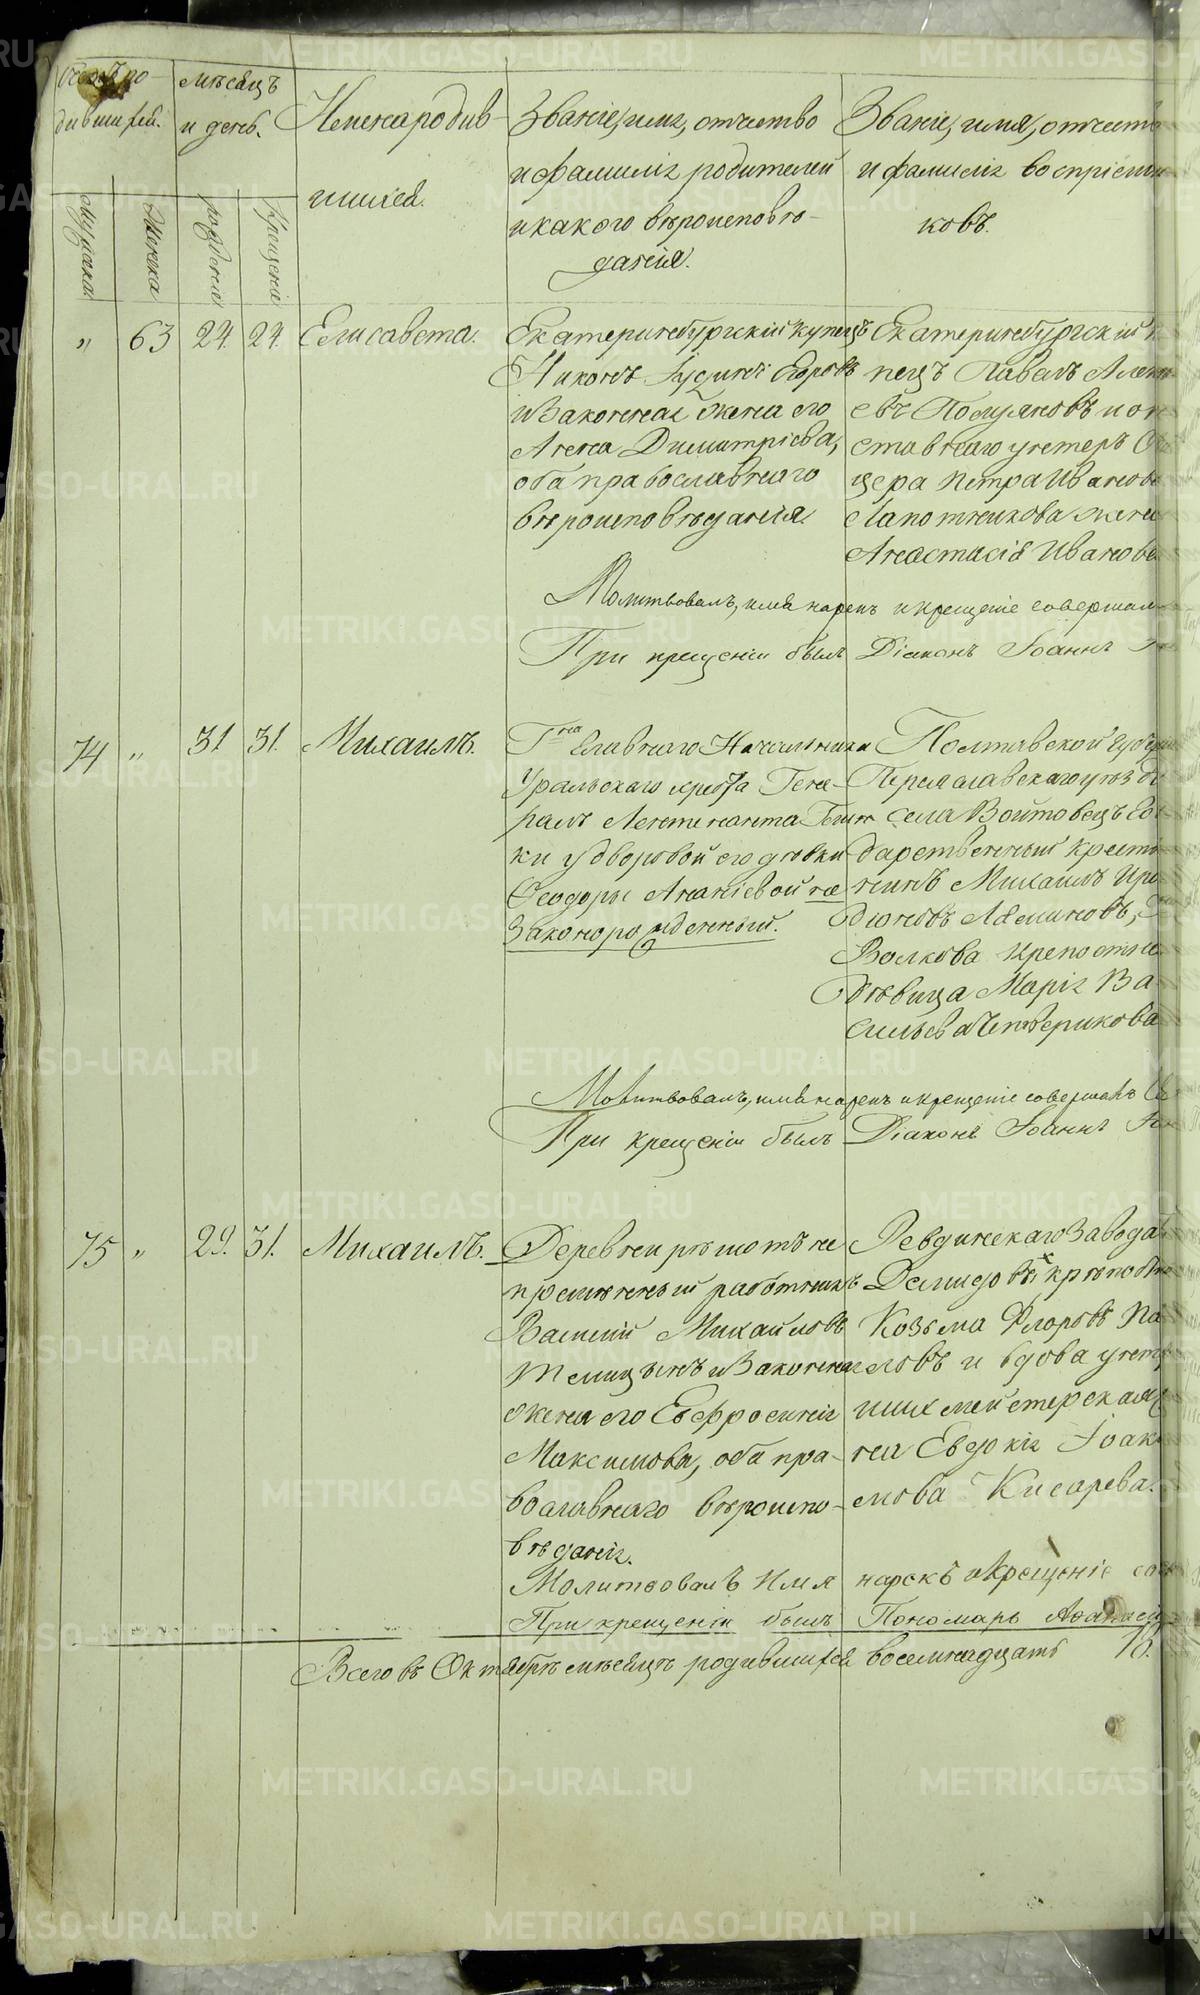 мѣсяцъ
и день.
Имена родив-
шихся.
Званіе, имя, отчество
и фамилія родителей
и какого вѣроисповѣ-
данія.
Званіе, имя, отчеств
и фамилія воспріемни
ковъ.
мужска
женска
рожденія
крещенія
„ 63 24. 24. Елисавета.
Екатеринбургскій купецъ
Никонъ Егоровъ
и законная жена его
Анна Димитріева,
оба православнаго
вѣроисповѣданія.
Екатеринбургскій
пецъ Павелъ
евъ и от
ставнаго унтеръ О
цера Петра Иванова
Лапотникова жена
Анастасія Иванова
Молитвовалъ, имя нарекъ и крещеніе совершал
При крещеніи былъ Діаконъ Іоаннъ
74 „ 31 31. Михаилъ.
Гна Главнаго Начальника
Уральскаго хребта Гене-
ралъ Лентинанта Глин
ки у дворовой его дѣвки
Ѳеодоры Ананіевой не
законорожденный.
Полтавской губерн
Переяславскаго уѣзда
села Войтовецъ Го
дарственный крестья
нинъ Михаилъ Иро
діоновъ Ляминовъ,
Волкова крепостна
дѣвица Марія Ва
сильева Четверикова
Молитвовалъ, имя нарекъ и крещеніе совершалъ
При крещеніи былъ Діаконъ Іоаннъ
75 „ 29. 31. Михаилъ.
Деревни рѣшотъ не
премѣнный работникъ
Василій Михайловъ
и законная
жена его Евфросинія
Максимова, оба пра-
вославнаго вѣроиспо-
вѣданія.
Ревдинскаго Завода
Демидовыхъ крѣпостн
Козьма Флоровъ Па
ловъ и вдова унтер
шихмейстерская
на Евдокія Іоаки
мова Кисарева.
Молитвовалъ Имя нарекъ и Крещеніе со
При крещеніи былъ Пономарь
Всего въ Октябрѣ мѣсяцѣ родившихся восемнадцать
METRIKI.GASO-URAL.RU